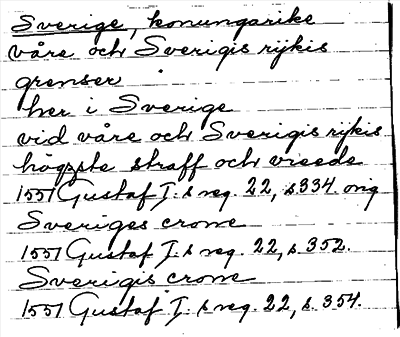 Sverige, konungarike
våre och Sverigis rijkis
grenser
her i Sverige
vid våre och Sverigis rijkis
högzste straff och vreede
1551 Gustaf I:s reg. 22, s 334. orig
Sveriges crone
1551 Gustaf I:s reg. 22, s. 352.
Sverigis crone
1551 Gustaf I:s reg. 22, s. 354.